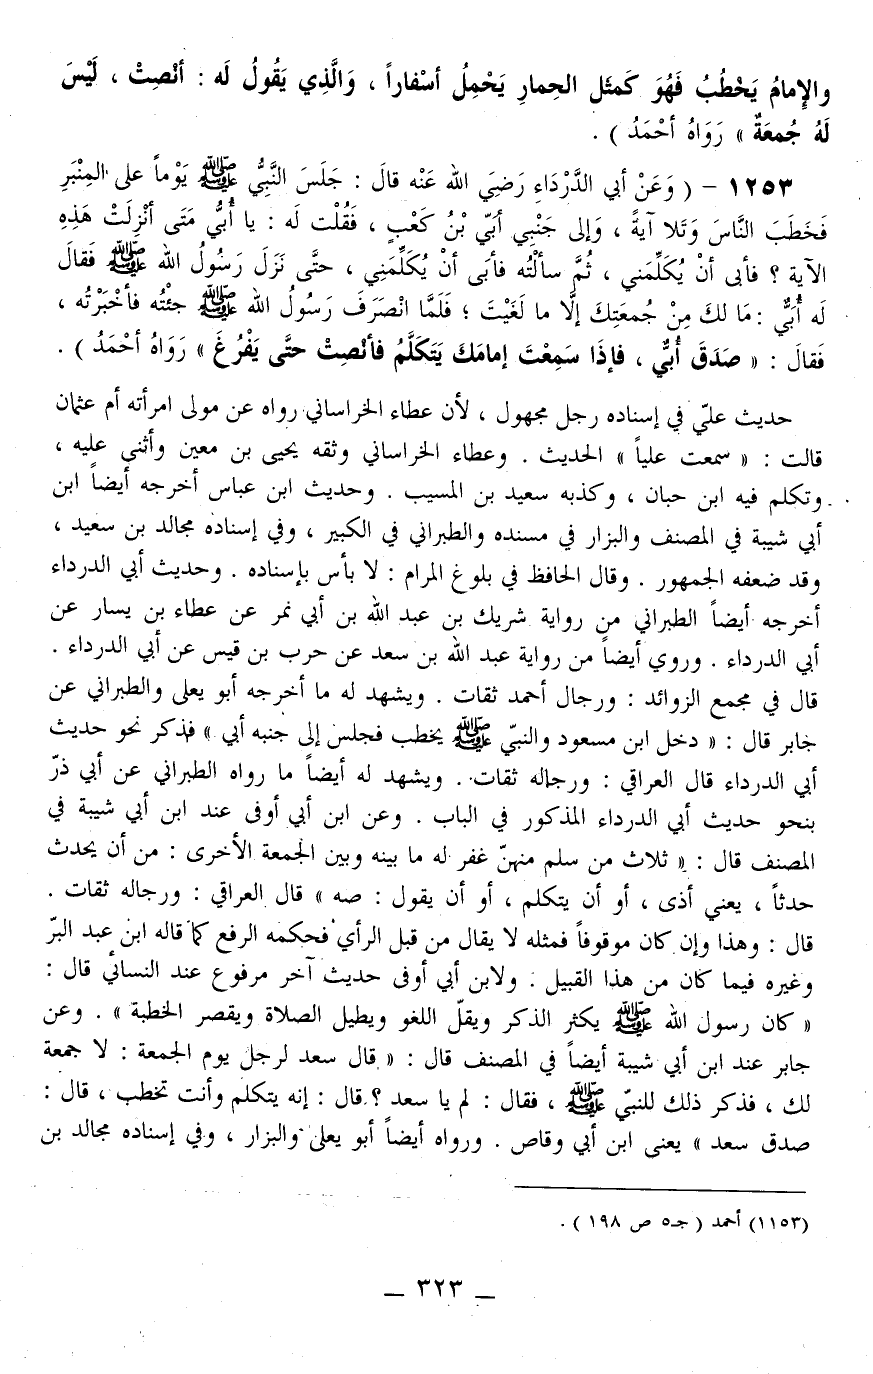 والإِمامُ يَخْطُبُ فَهُوَ كَمثَلِ الحِمارِ يَحْمِلُ أسْفاراً ، وَالَّذِي يَقُولُ لَه : أنْصِتْ ، لَيْسَ
لَهُ جُمعَةٌ » رَوَاهُ أحْمَدُ ) .
١٢٥٣ – ( وَعَنْ أبي الدَّرْدَاءِ رَضِيَ الله عَنْه قالَ : جَلَسَ النَّبِيُّ ﷺ يَوْماً على المِنْبَرِ
فَخَطَبَ النَّاسَ وَتَلا آيةً ، وَإلى جَنْبِي أبَيّ بْنُ كَعْبٍ ، فَقُلْت لَه : يا أُبيُّ مَتَى أنْزِلَتْ هَذِهِ
الآية ؟ فأبى أنْ يُكَلِّمَني ، ثُمَّ سألْتُه فأبَى أنْ يُكَلِّمَنِي ، حتَّى نَزَلَ رَسُولُ الله ﷺ فَقالَ
لَه أُبَيٌّ : مَا لكَ مِنْ جُمعَتِكَ إلَّا ما لَغَيْتَ ؛ فَلَمَّا انْصَرَفَ رَسُولُ الله ﷺ جئْتُه فأخْبَرْتُه ،
فَقالَ : « صَدَقَ أُبيٌّ ، فإذَا سَمِعْتَ إمامَكَ يَتَكَلَّمُ فأنْصِتْ حتَّى يَفْرُغَ » رَوَاهُ أحْمَدُ ) .
حديث عليّ في إسناده رجل مجهول ، لأن عطاء الخراساني رواه عن مولى امرأته أم عثمان
قالت : « سمعت علياً » الحديث . وعطاء الخراساني وثقه يحيى بن معين وأثنى عليه ،
وتكلم فيه ابن حبان ، وكذبه سعيد بن المسيب . وحديث ابن عباس أخرجه أيضاً ابن
أبي شيبة في المصنف والبزار في مسنده والطبراني في الكبير ، وفي إسناده مجالد بن سعيد ،
وقد ضعفه الجمهور . وقال الحافظ في بلوغ المرام : لا بأس بإسناده . وحديث أبي الدرداء
أخرجه أيضاً الطبراني من رواية شريك بن عبد الله بن أبي نمر عن عطاء بن يسار عن
أبي الدرداء . وروي أيضاً من رواية عبد الله بن سعد عن حرب بن قيس عن أبي الدرداء .
قال في مجمع الزوائد : ورجال أحمد ثقات . ويشهد له ما أخرجه أبو يعلى والطبراني عن
جابر قال : « دخل ابن مسعود والنبيّ ﷺ يخطب فجلس إلى جنبه أبي » فذكر نحو حديث
أبي الدرداء قال العراقي : ورجاله ثقات . ويشهد له أيضاً ما رواه الطبراني عن أبي ذرّ
بنحو حديث أبي الدرداء المذكور في الباب . وعن ابن أبي أوفى عند ابن أبي شيبة في
المصنف قال : « ثلاث من سلم منهنّ غفر له ما بينه وبين الجمعة الأخرى : من أن يحدث
حدثاً ، يعني أذى ، أو أن يتكلم ، أو أن يقول : صه » قال العراقي : ورجاله ثقات .
قال : وهذا وإن كان موقوفاً فمثله لا يقال من قبل الرأي فحكمه الرفع كما قاله ابن عبد البرّ
وغيره فيما كان من هذا القبيل : ولابن أبي أوفى حديث آخر مرفوع عند النسائي قال :
« كان رسول الله ﷺ يكثر الذكر ويقلّ اللغو ويطيل الصلاة ويقصر الخطبة » . وعن
جابر عند ابن أبي شيبة أيضاً في المصنف قال : « قال سعد لرجل يوم الجمعة : لا جمعة
لك ، فذكر ذلك للنبيّ ﷺ ، فقال : لم يا سعد ؟ قال : إنه يتكلم وأنت تخطب ، قال :
صدق سعد » يعنى ابن أبي وقاص . ورواه أيضاً أبو يعلى والبزار ، وفي إسناده مجالد بن
(١١٥٣) أحمد ( جـ٥ ص ١٩٨ ) .
ــ ٣٢٣ ــ